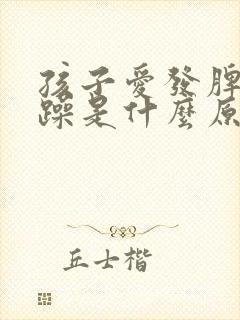 孩子愛發脾
躁是什麼原
丘士楷